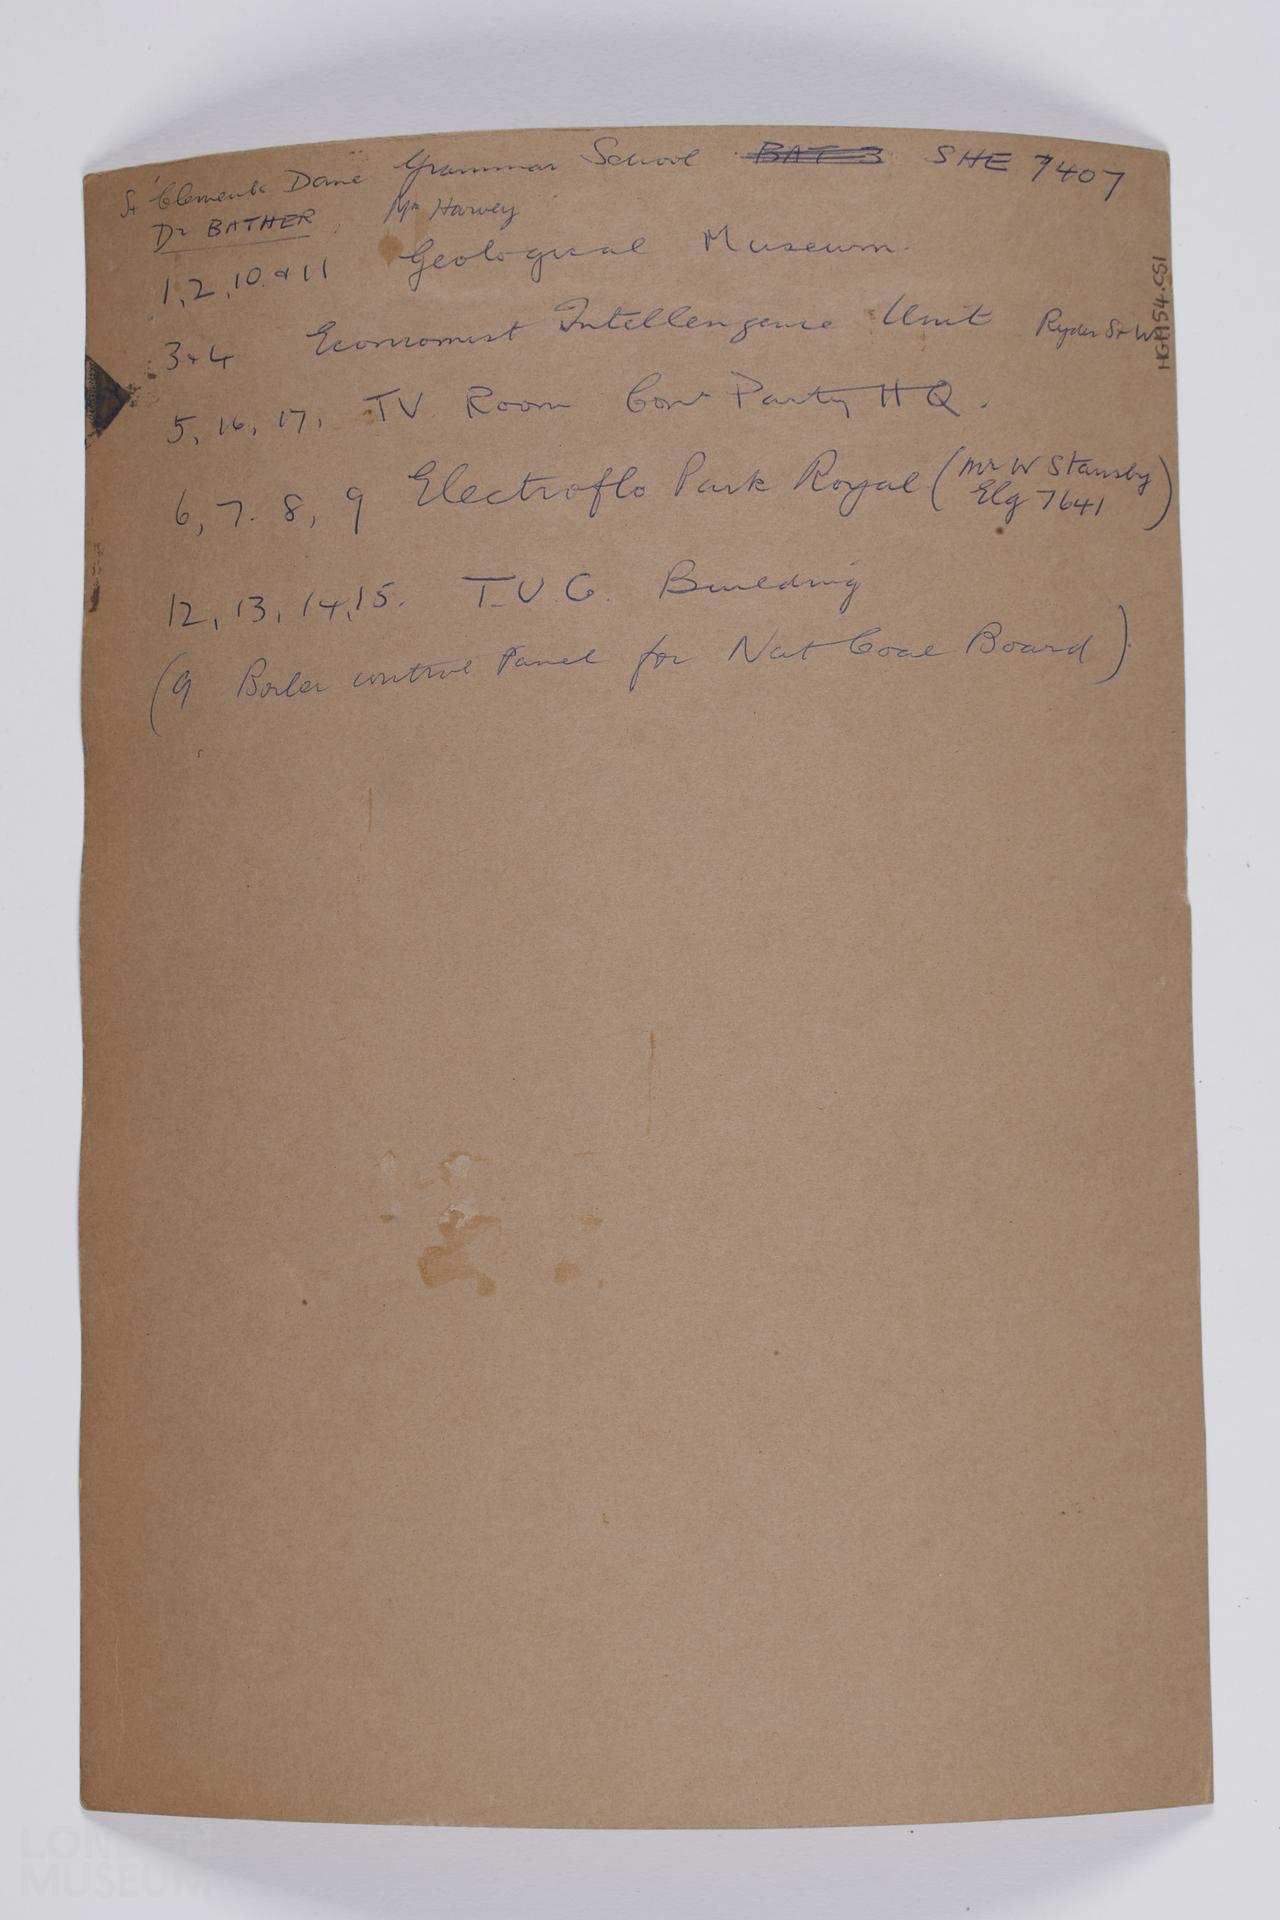 St Clements Dane Grammar School BAT 3 SHE 7407
Dr BATHER, Mr Harvey
1, 2, 10 & 11 Geological Museum.
3 & 4 Economist Intellengence Unit Ryder St W
5, 16, 17, TV Room Con Party HQ.
6, 7. 8, 9 Electroflo Park Royal (Mr W Stansby
Elg 7641)
12, 13, 14, 15. T.U.C. Building
(9 Boiler control Panel for Nat Coal Board).
HG1954.CS1
LONDON
MUSEUM